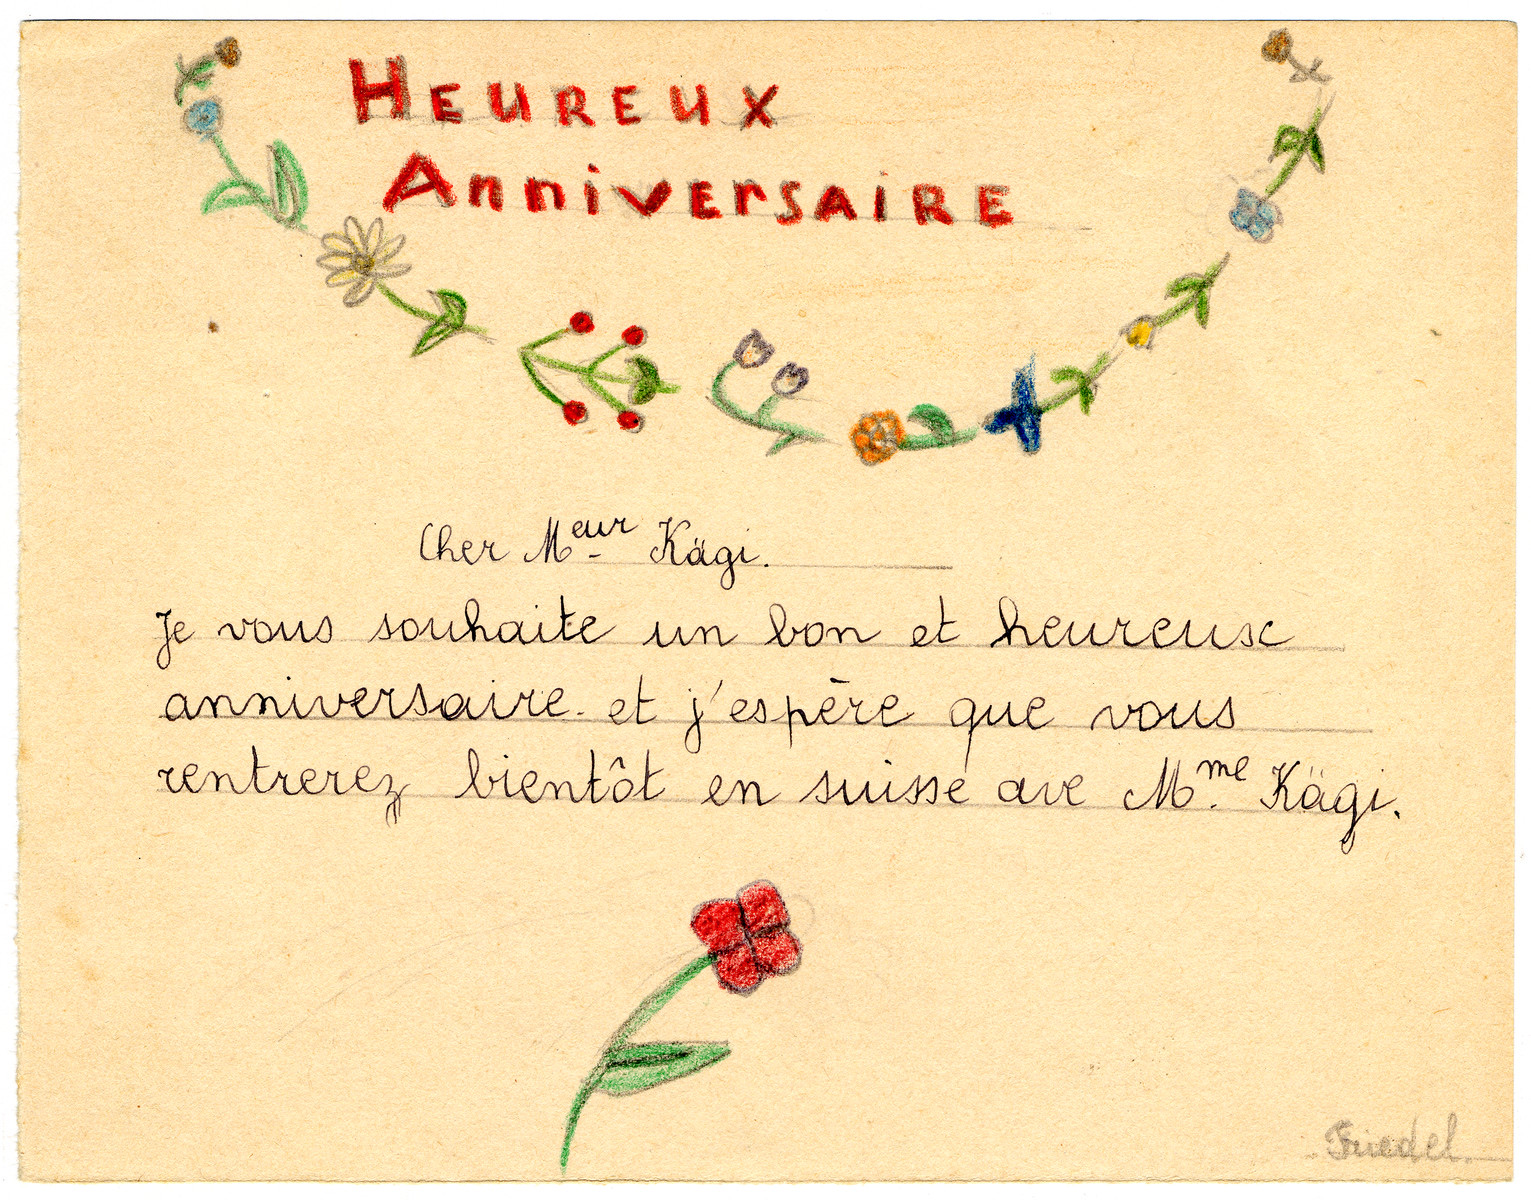 HEUREUX
ANNIVERSAIRE
Cher Meur Kägi.
Je vous souhaite un bon et heureux
anniversaire et j'espère que vous
rentrerez bientôt en suisse ave Mme Kägi.
Friedel.